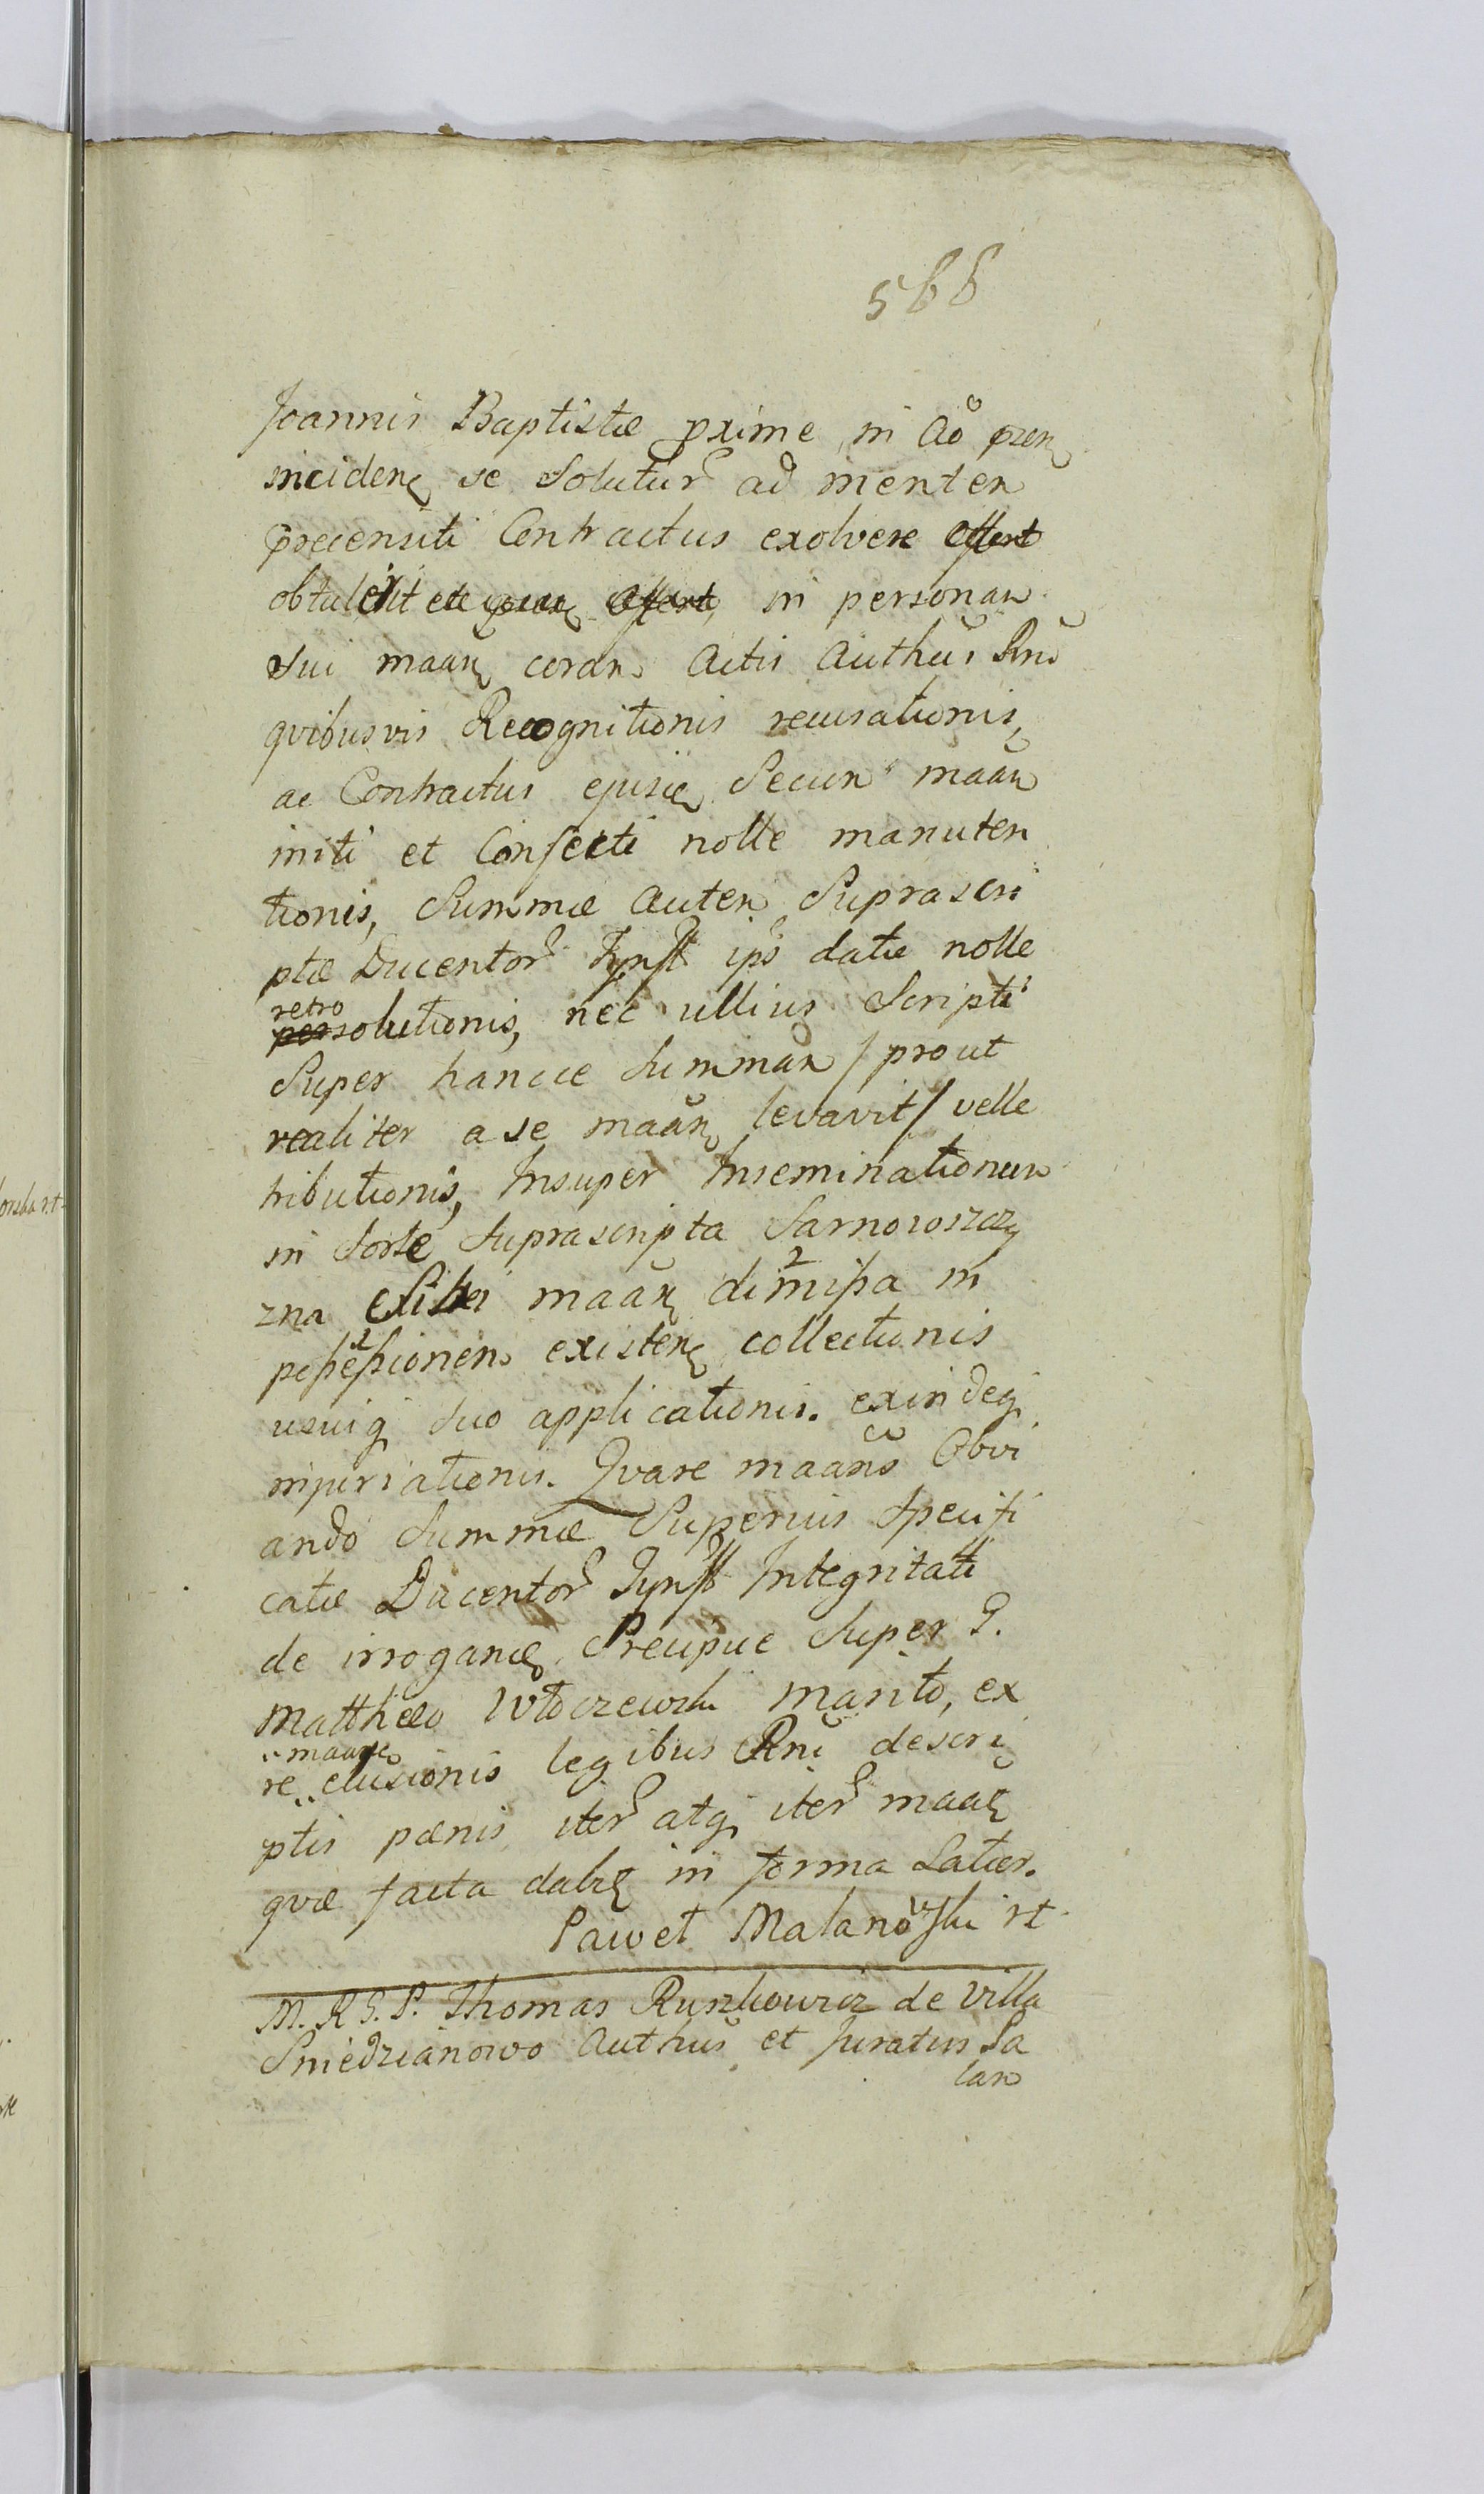 568
Joannis Baptistæ pxime in Aō præn
inciden se Solutur ad menten
præcensiti Contractus exolvere offert
obtulerit et offert, in personan
sui maan coran Actis Authūs Rnō
qvibusvis Recognitionis recusationis,
ac Contractus ejusce Secun maan
initi et Confecti nolle manuten
tionis, Summæ auten Suprascri
ptæ Ducentor Tynfl ips datæ nolle
retro
persolutionis, nec ullius Scripti
Super hancce Summan / prout
realiter a se maan levavit / velle
tributionis, Insuper Inseminationun
in Sorte Suprascripta Sarnowszczy
zna maan dimissa in
possessionen existen collectionis
usuiq suo applicationis. exindeq
injuriationis. Qvare maanō Obvi
ando Summæ Superius Specifi
catæ Ducentor Tynfl Integritati
de irrogan Precipue Super G.
Matthæo Włoczewski marito, ex
re maan elusionis legibus Rni descri
ptis pænis iter atq iter maan
qvæ facta dabit in forma Latior.
Paweł Malanowski rt
M. R G. P. Thomas Ruszkowicz de Villa
Sniedzianowo Authūs et Juratus Pa
lan